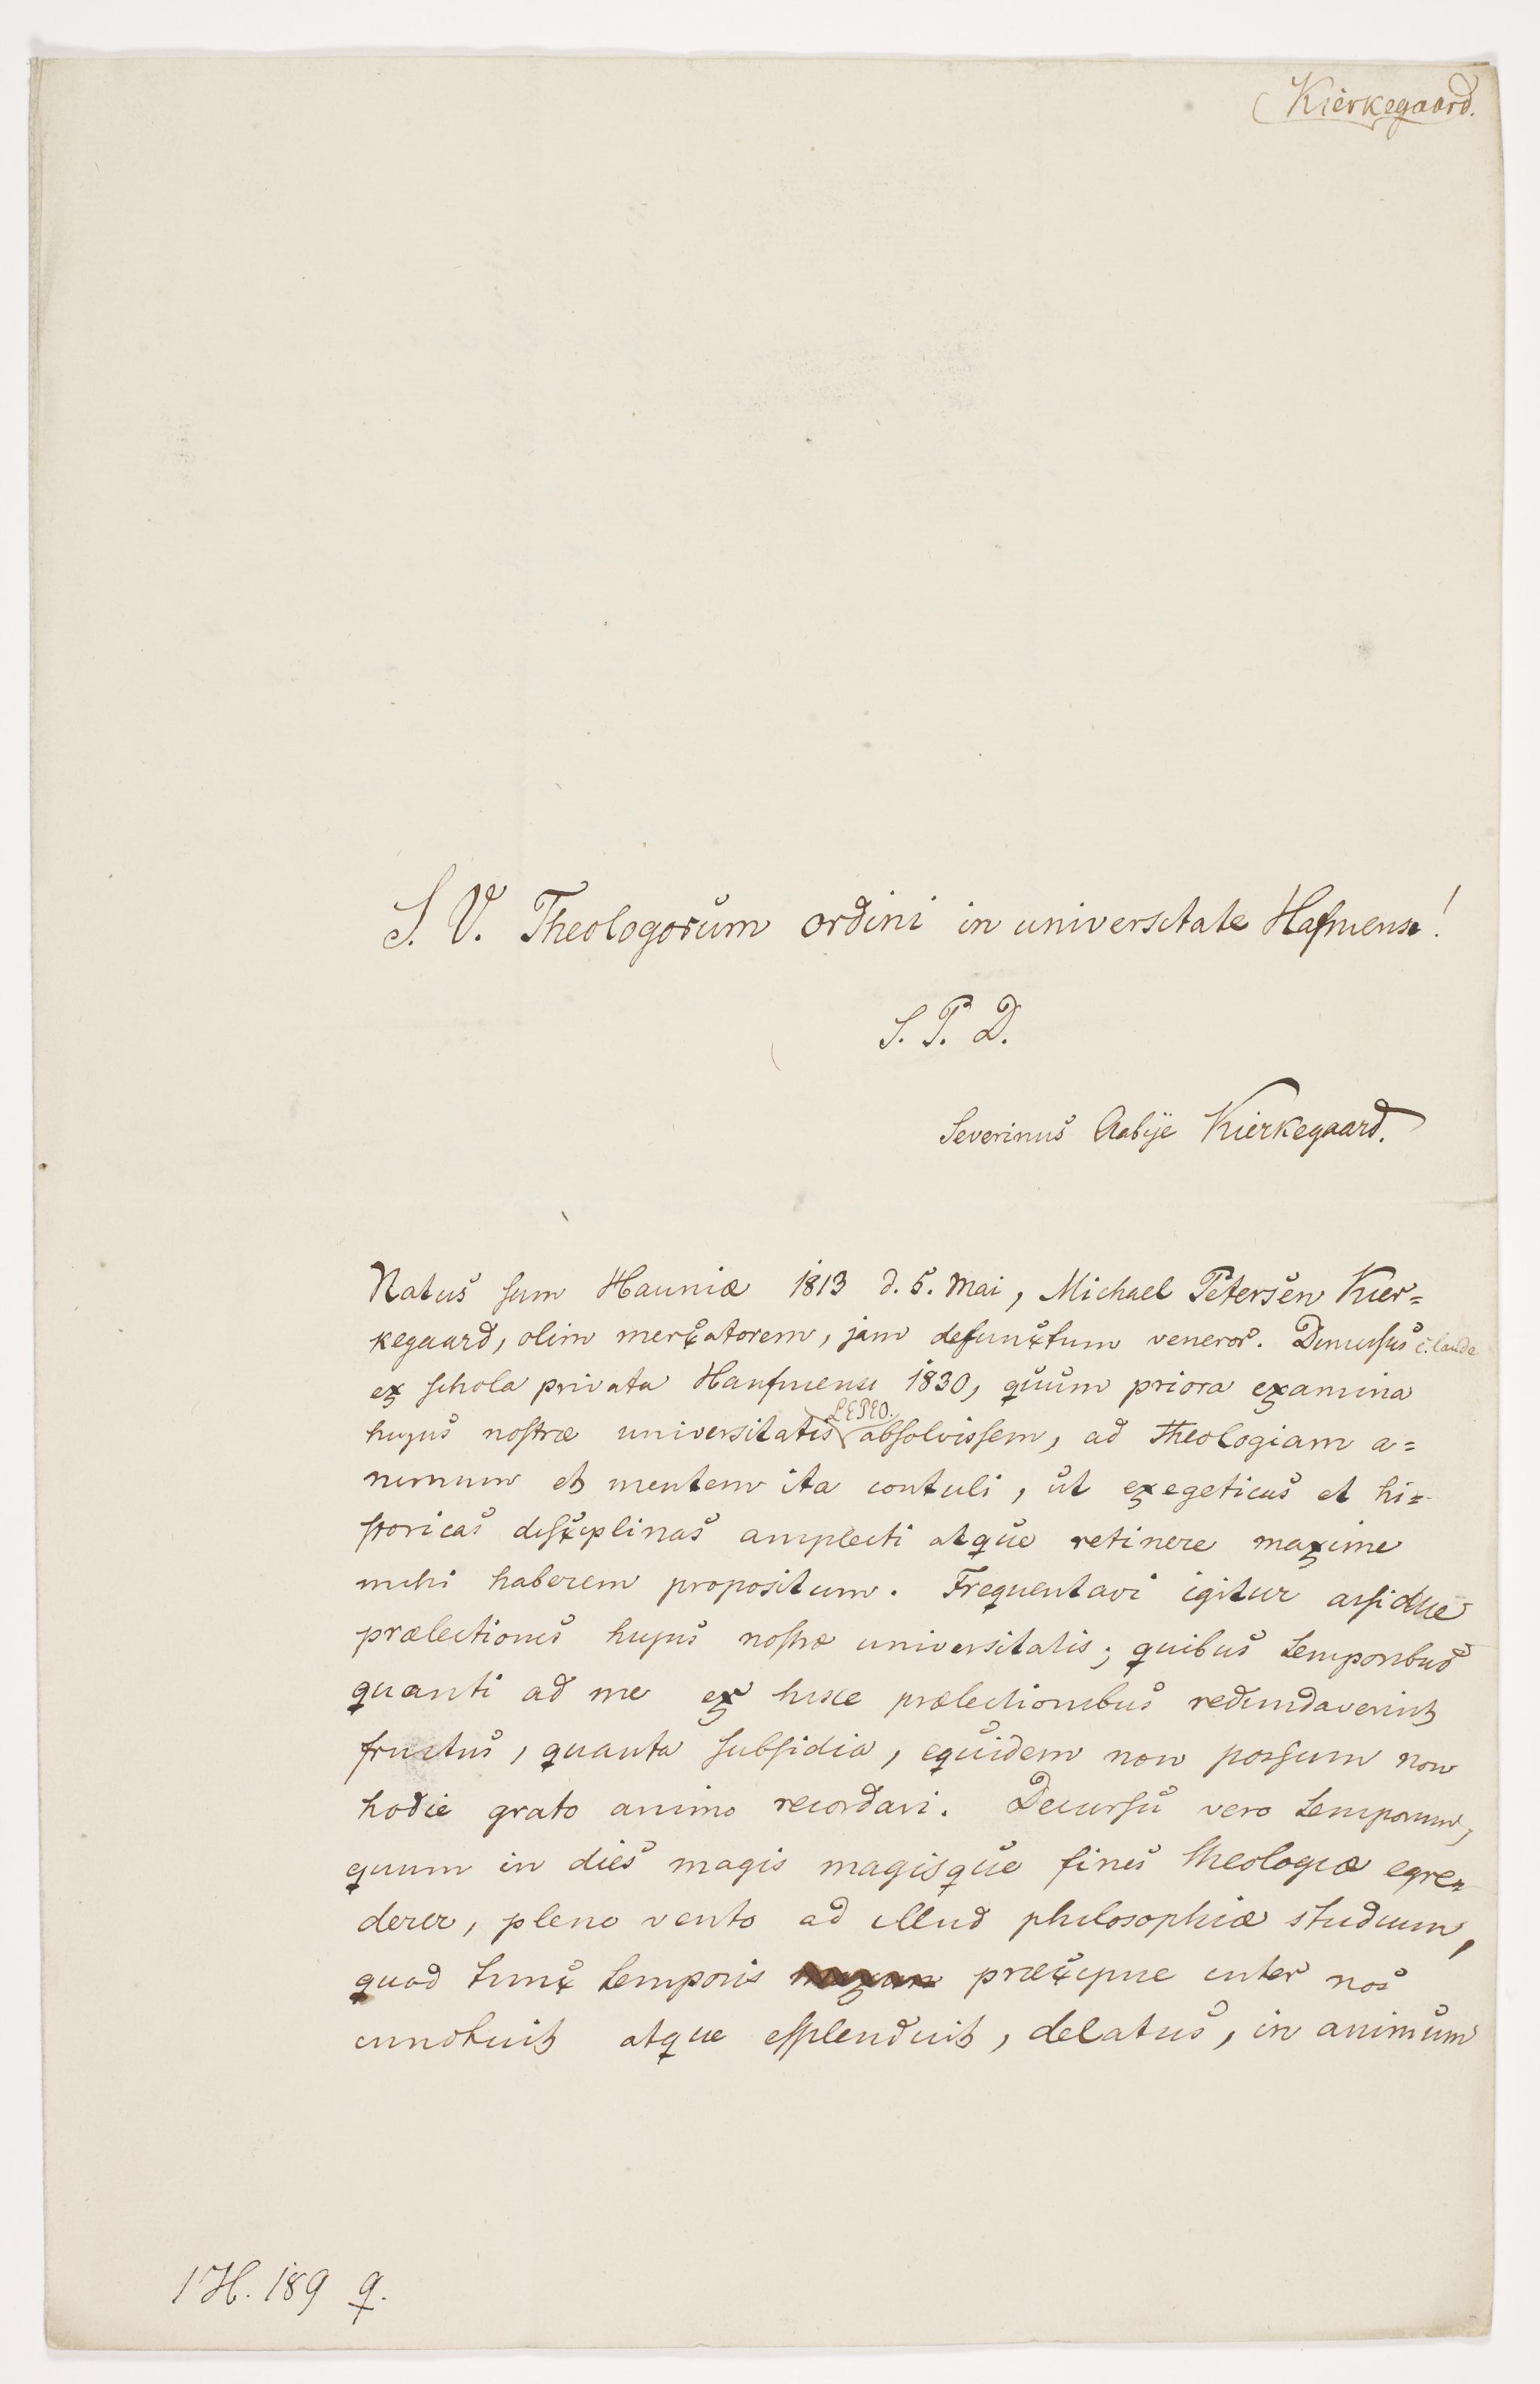 Kierkegaard.
S. V. Theologorum ordini in universitate Hafniensi!
S. P. D.
Severinus Aabÿe Kierkegaard.
Natus sum Hauniæ 1813 d. 5. Mai, Michael Petersen Kier=
kegaard, olim mercatorem, jam defunctum veneror. Dimissus c. laude
ex schola privata Haufniensi 1830, quum priora examina
hujus nostræ universitatis absolvissem, ad Theologiam a=
nimum et mentem ita contuli, ut exegeticas et hi=
storicas disciplinas amplecti atque retinere maxime
mihi haberem propositum. Frequentavi igitur assidue
prælectiones hujus nostræ universitatis; quibus temporibus
quanti ad me ex hisce prælectionibus redundaverint
fructus, quanta subsidia, equidem non possum non
hodie grato animo recordari. Decursu vero temporum,
quum in dies magis magisque fines theologiæ egre=
derer, pleno vento ad illud philosophiæ studium,
quod tunc temporis præcipue inter nos
innotuit atque esplenduit, delatus, in animum
1 H. 189 q.